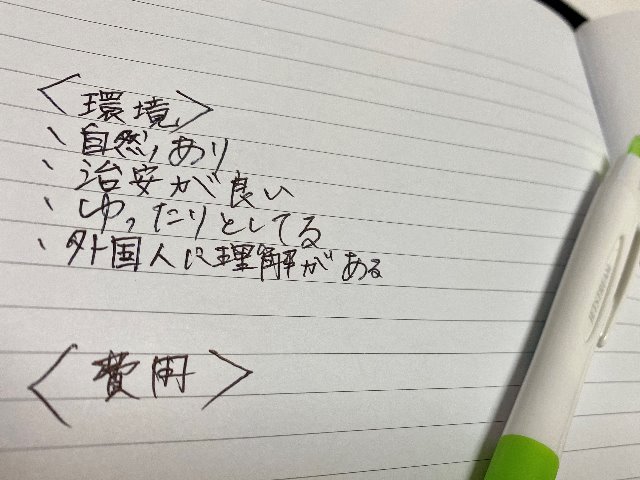 〈環境〉
、自然あり
、治安が良い
、ゆったりとしてる
、外国人に理解がある
〈費用〉